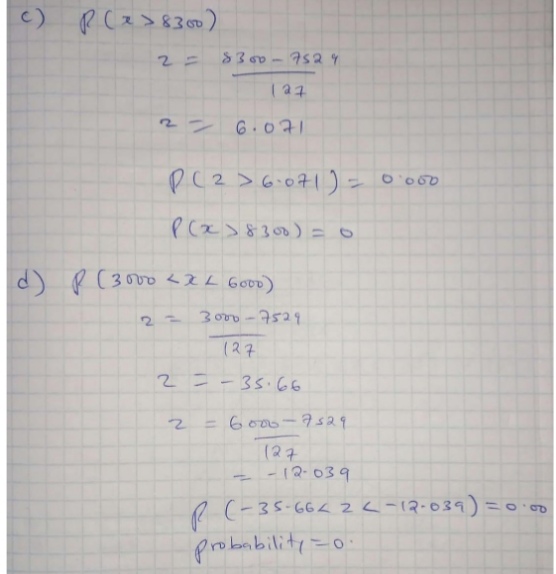 c) P(x>8300)
z = 8300-7529
127
z = 6.071
P(z>6.071) = 0.000
P(x>8300) = 0
d) P(3000<x<6000)
z = 3000-7529
127
z = -35.66
z = 6000-7529
127
= -12.039
P(-35.66<z<-12.039)=0.00
probability=0.